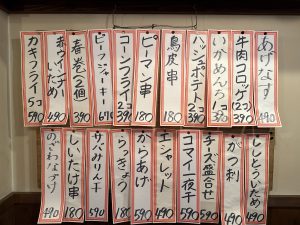 あげなす 490
牛肉コロッケ 2コ 390
いかめんち 1コ
ハッシュポテト 2コ 390
鳥皮串 180
ピーマン串 180
コーンフライ 2コ 390
ビーフジャーキー 670
春巻 2個 390
赤ウィンナーいため 490
カキフライ 5コ 590
ししとういため 490
がつ刺 490
チーズ盛合せ 590
コマイ一夜干 590
エシャレット 490
からあげ 590
らっきょう 180
サバみりん干 590
しいたけ串 180
のざわなづけ 490